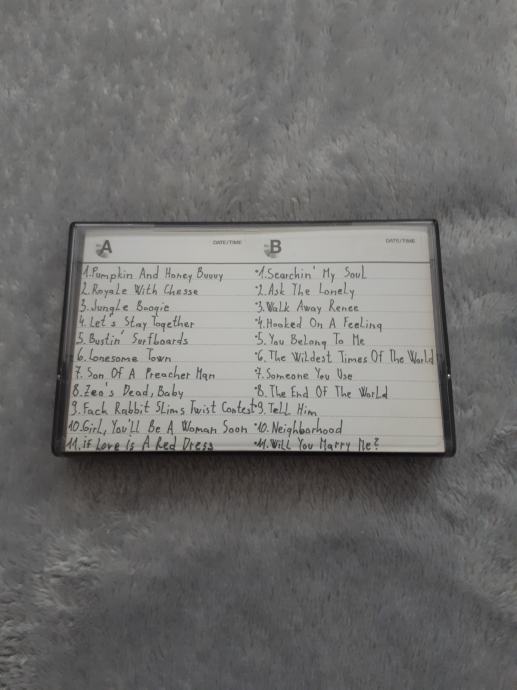 A DATE/TIME
1.Pumpkin And Honey Buuuy
2.Royale With Chesse
3.Jungle Boogie
4.Let's Stay Together
5.Bustin' Surfboards
6.Lonesome Town
7.Son Of A Preacher Man
8.Zeo's Dead, Baby
9.Fach Rabbit Slims Twist Contest
10.Girl, You'll Be A Woman Soon
11.if Love Is A Red Dress
B DATE/TIME
1.Searchin' My Soul
2.Ask The Lonely
3.Walk Away Renee
4.Hooked On A Feeling
5.You Belong To Me
6.The Wildest Times Of The World
7.Someone You Use
8.The End Of The World
9.Tell Him
10.Neighborhood
11.Will You Marry Me?